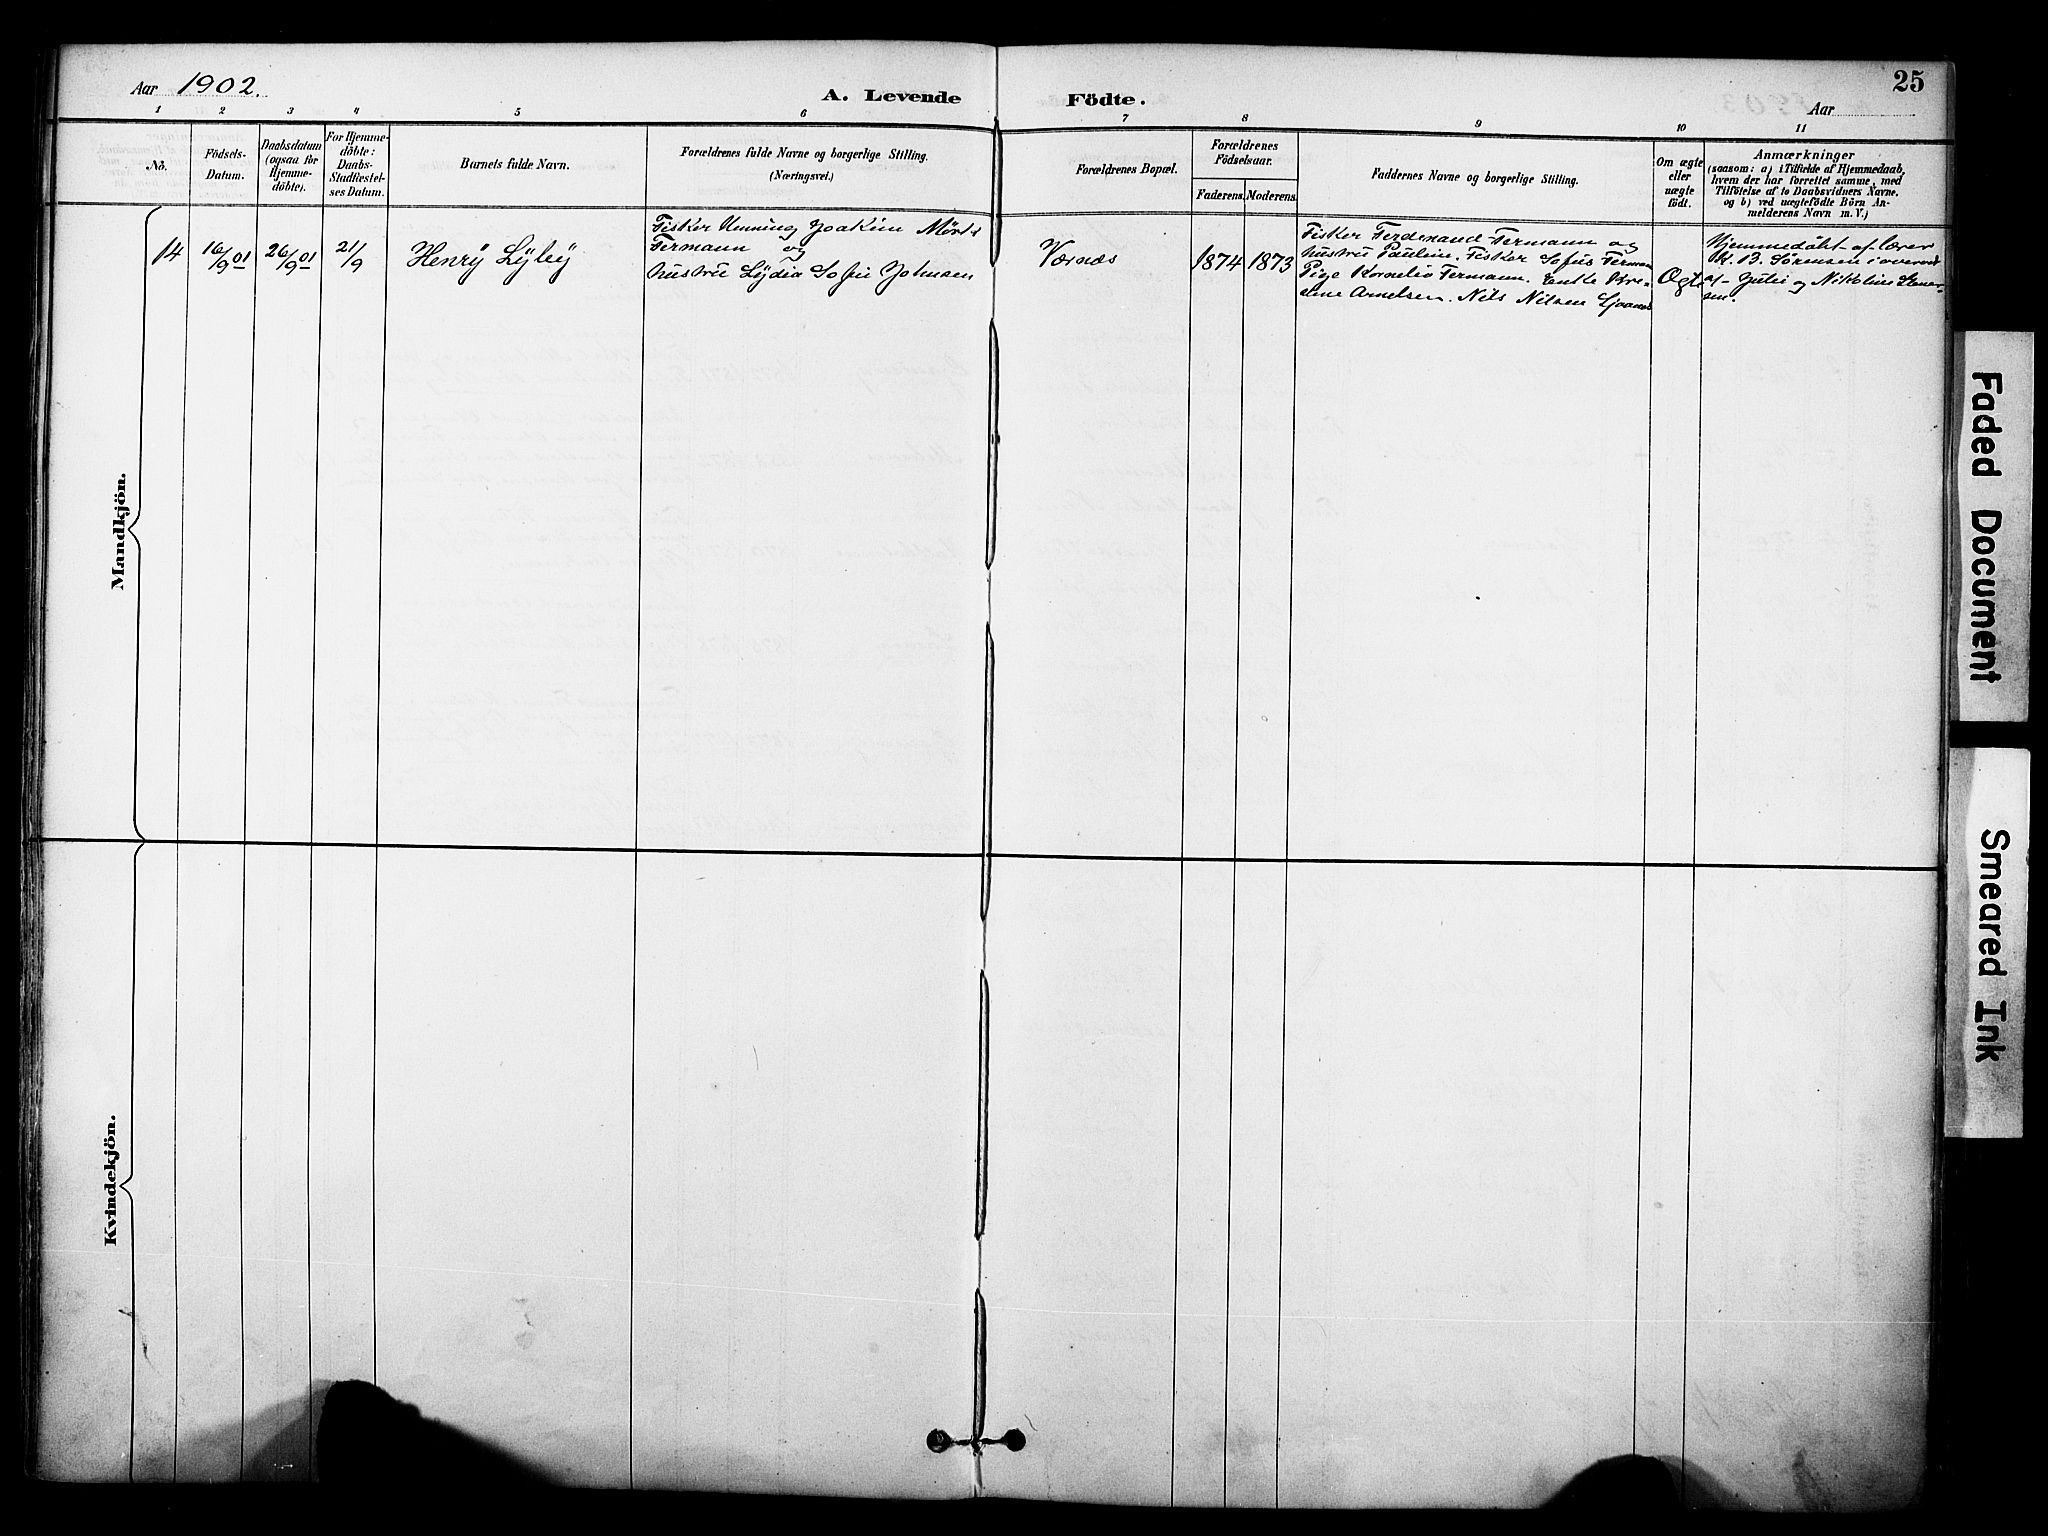 Aar 1902.
A. Levende Födte.
25
Aar
1 2 3 4 5 6 7 8 9 10 11
No.
Födsels-
Datum.
Daabsdatum
(ogsaa for
Hjemme-
döbte).
For Hjemme-
döbte:
Daabs-
Stadfæstel-
ses Datum.
Barnets fulde Navn.
Forældrenes fulde Navne og borgerlige Stilling.
(Næringsvei.)
Forældrenes Bopæl.
Forældrenes
Födselsaar.
Faderens. Moderens.
Faddernes Navne og borgerlige Stilling.
Om ægte
eller
uægte
födt.
Anmærkninger
(saasom: a) i Tilfælde af Hjemmedaab,
hvem der har forrettet samme, med
Tilföielse af to Daabsvidners Navne,
og b) ved uægtefödte Börn An-
melderens Navn m. V.)
Mandkjön.
14
16/9 01
26/9 01
21/9
Henry Lyby
Fisker Henning Joakim Mørts
Fermann og
hustru Lydia Sofie Johnsen
Værnæs
1874
1873
Fisker Ferdinand Fermann og
hustru Pauline. Fisker Sofus Fermann
Pige Kornelia Fermann. Enke
Arnelsen. Nils Nilsen
Ægte
Hjemmedøbt af lærer
K. B. Sørensen i overvær
af Julie og Nikoline
sen.
Kvindekjön.
Faded Document
Smeared Ink